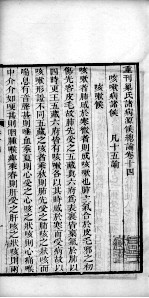 重刊巢氏諸病源候總論卷之十四
咳嗽病諸候　凡十五論
咳嗽候
咳嗽者肺感於寒微者則成咳嗽也肺主氣合於皮毛邪之初
傷先客皮毛故肺先受之五藏與六府為表裏皆稟氣於肺以
四時更王五藏六府皆有咳嗽各以其時感於寒而受病故以
咳嗽形證不同五藏之咳者乘秋則肺先受之肺咳之狀咳而
有喘息音聲甚則唾血乘夏則心先受之心咳之狀咳則心痛喉
中介介如哽甚則咽腫喉痺乘春則肝先受之肝咳之狀咳則兩